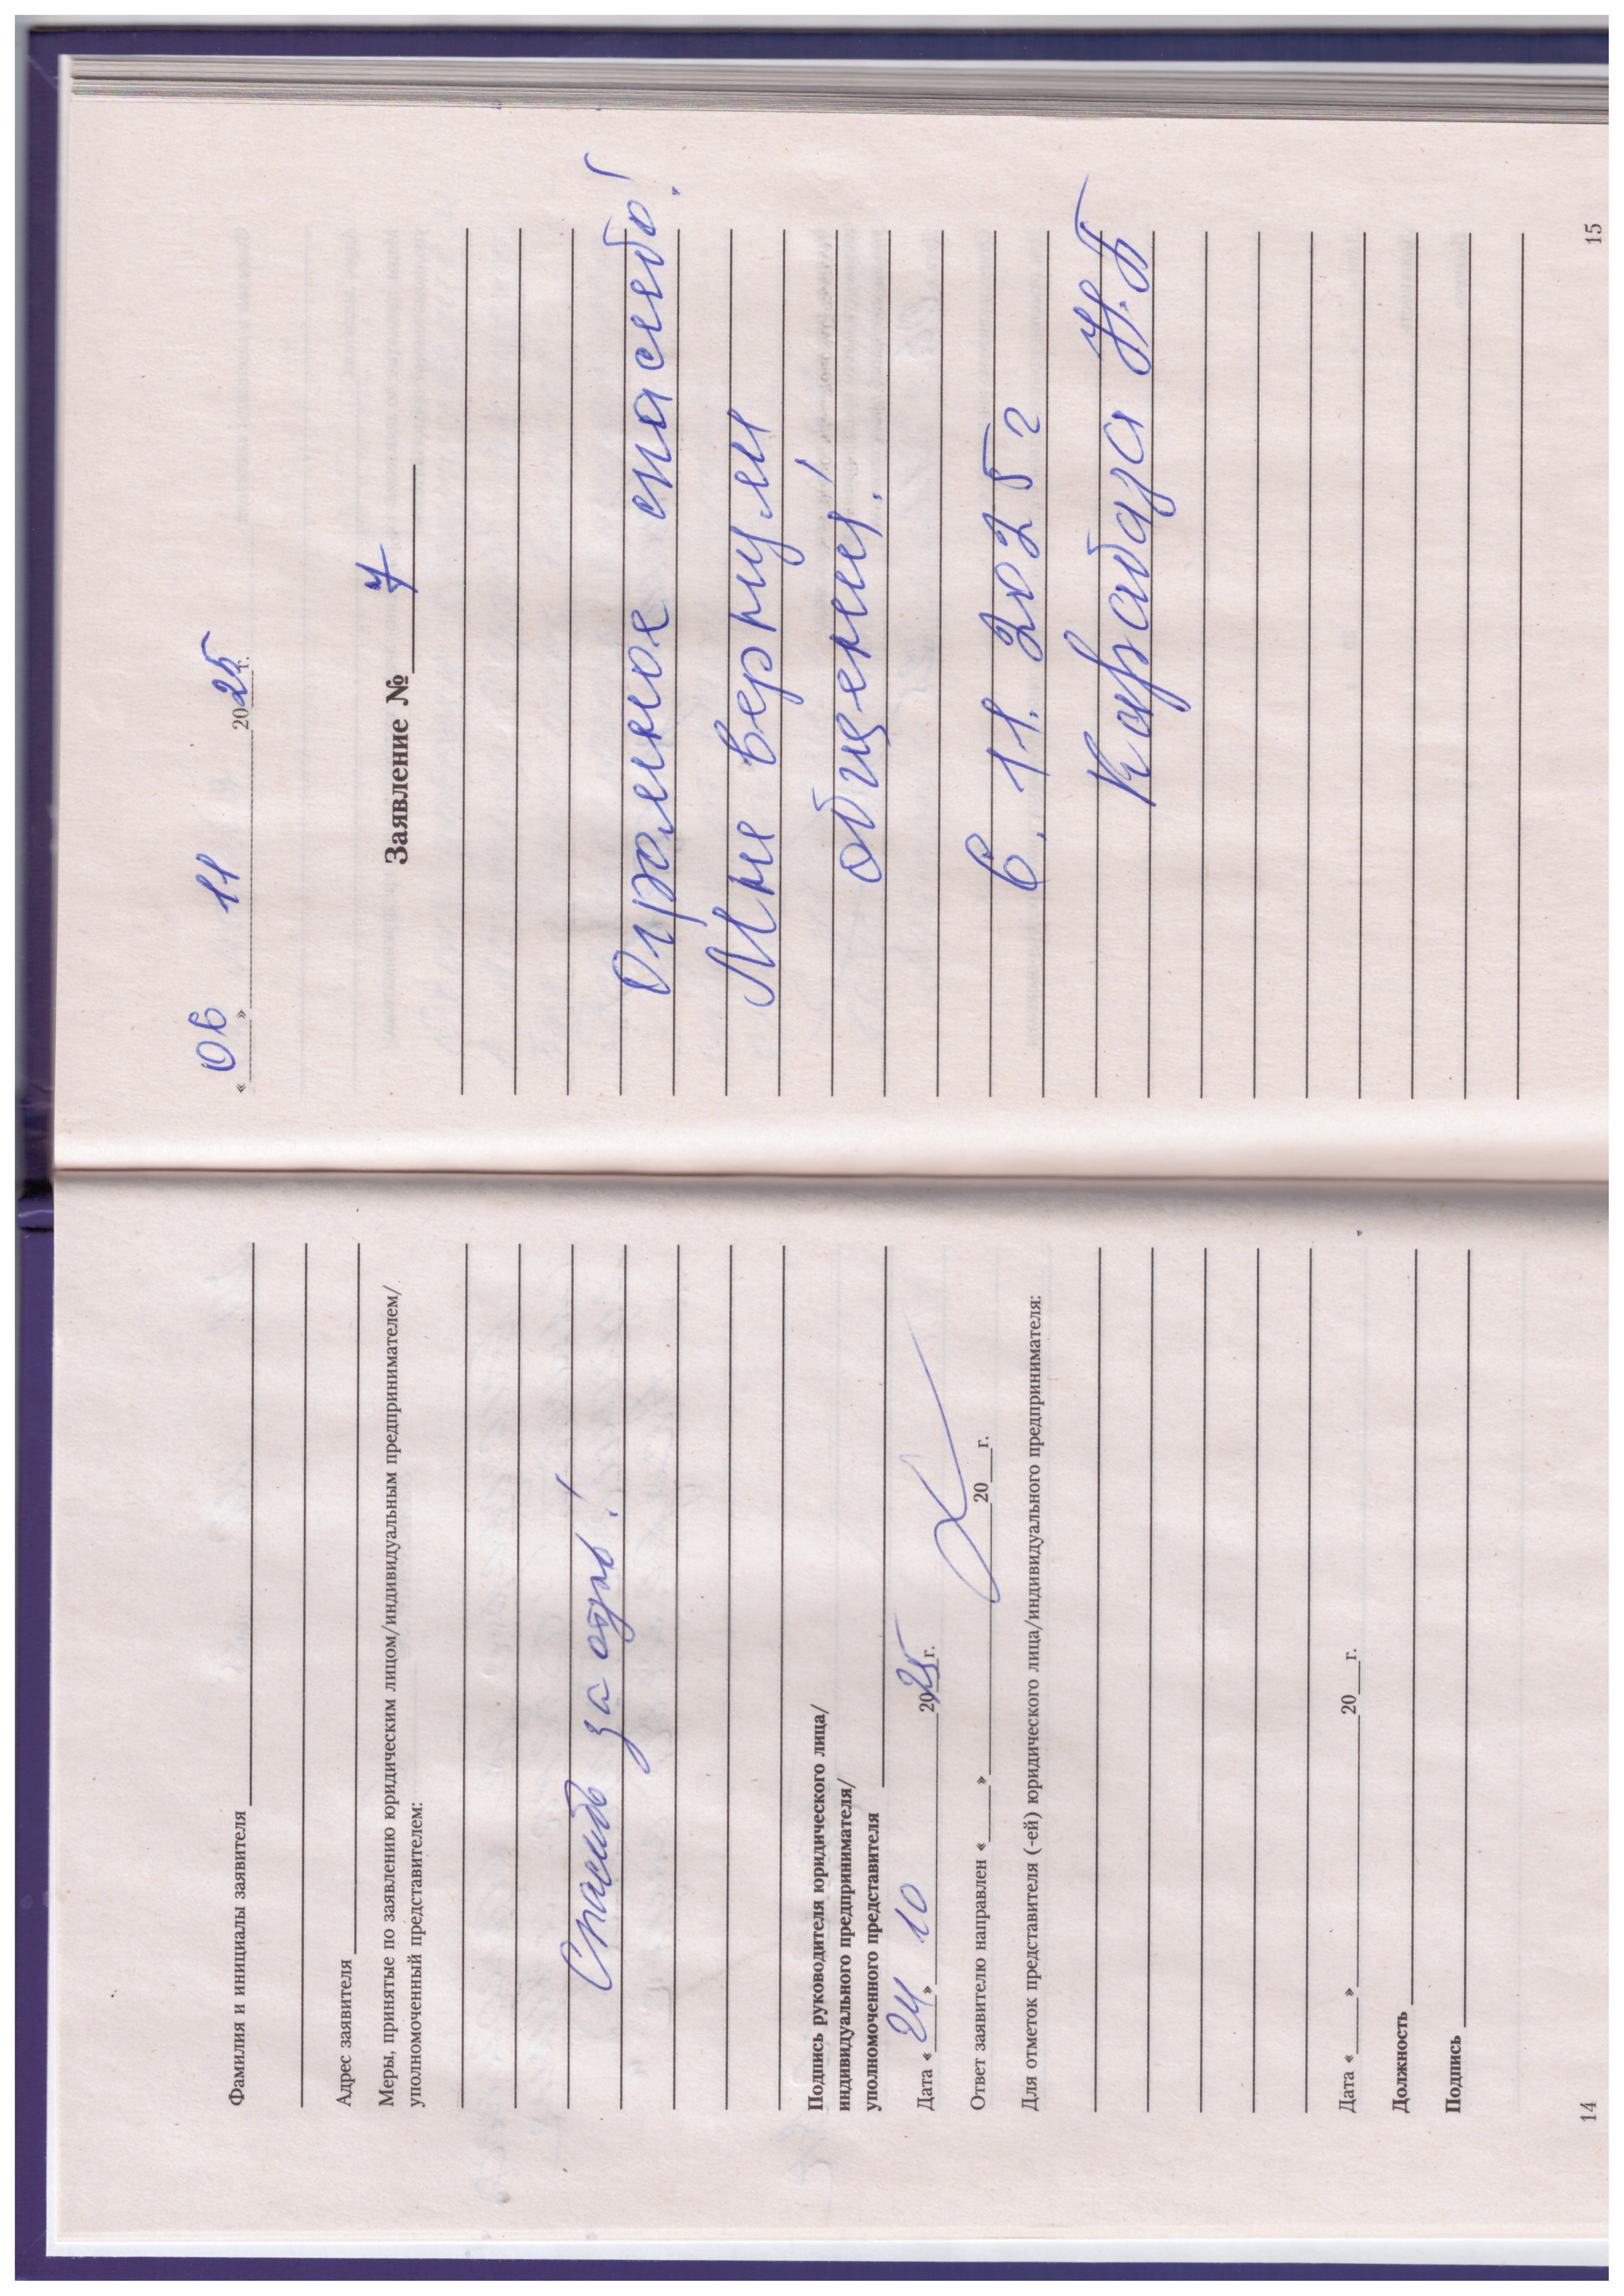 Фамилия и инициалы заявителя
Адрес заявителя
Меры, принятые по заявлению юридическим лицом/индивидуальным предпринимателем/
уполномоченный представителем:
Спасибо за отзыв!
Подпись руководителя юридического лица/
индивидуального предпринимателя/
уполномоченного представителя
Дата «24» 10 2025г.
Ответ заявителю направлен «____»____20__г.
Для отметок представителя (-ей) юридического лица/индивидуального предпринимателя:
Дата «____»____20__г.
Должность
Подпись
14
«06» 11 2025г.
Заявление № 7
Огромное спасибо!
Мне вернули
общение!
6. 11. 2025 г
Н.Б
15